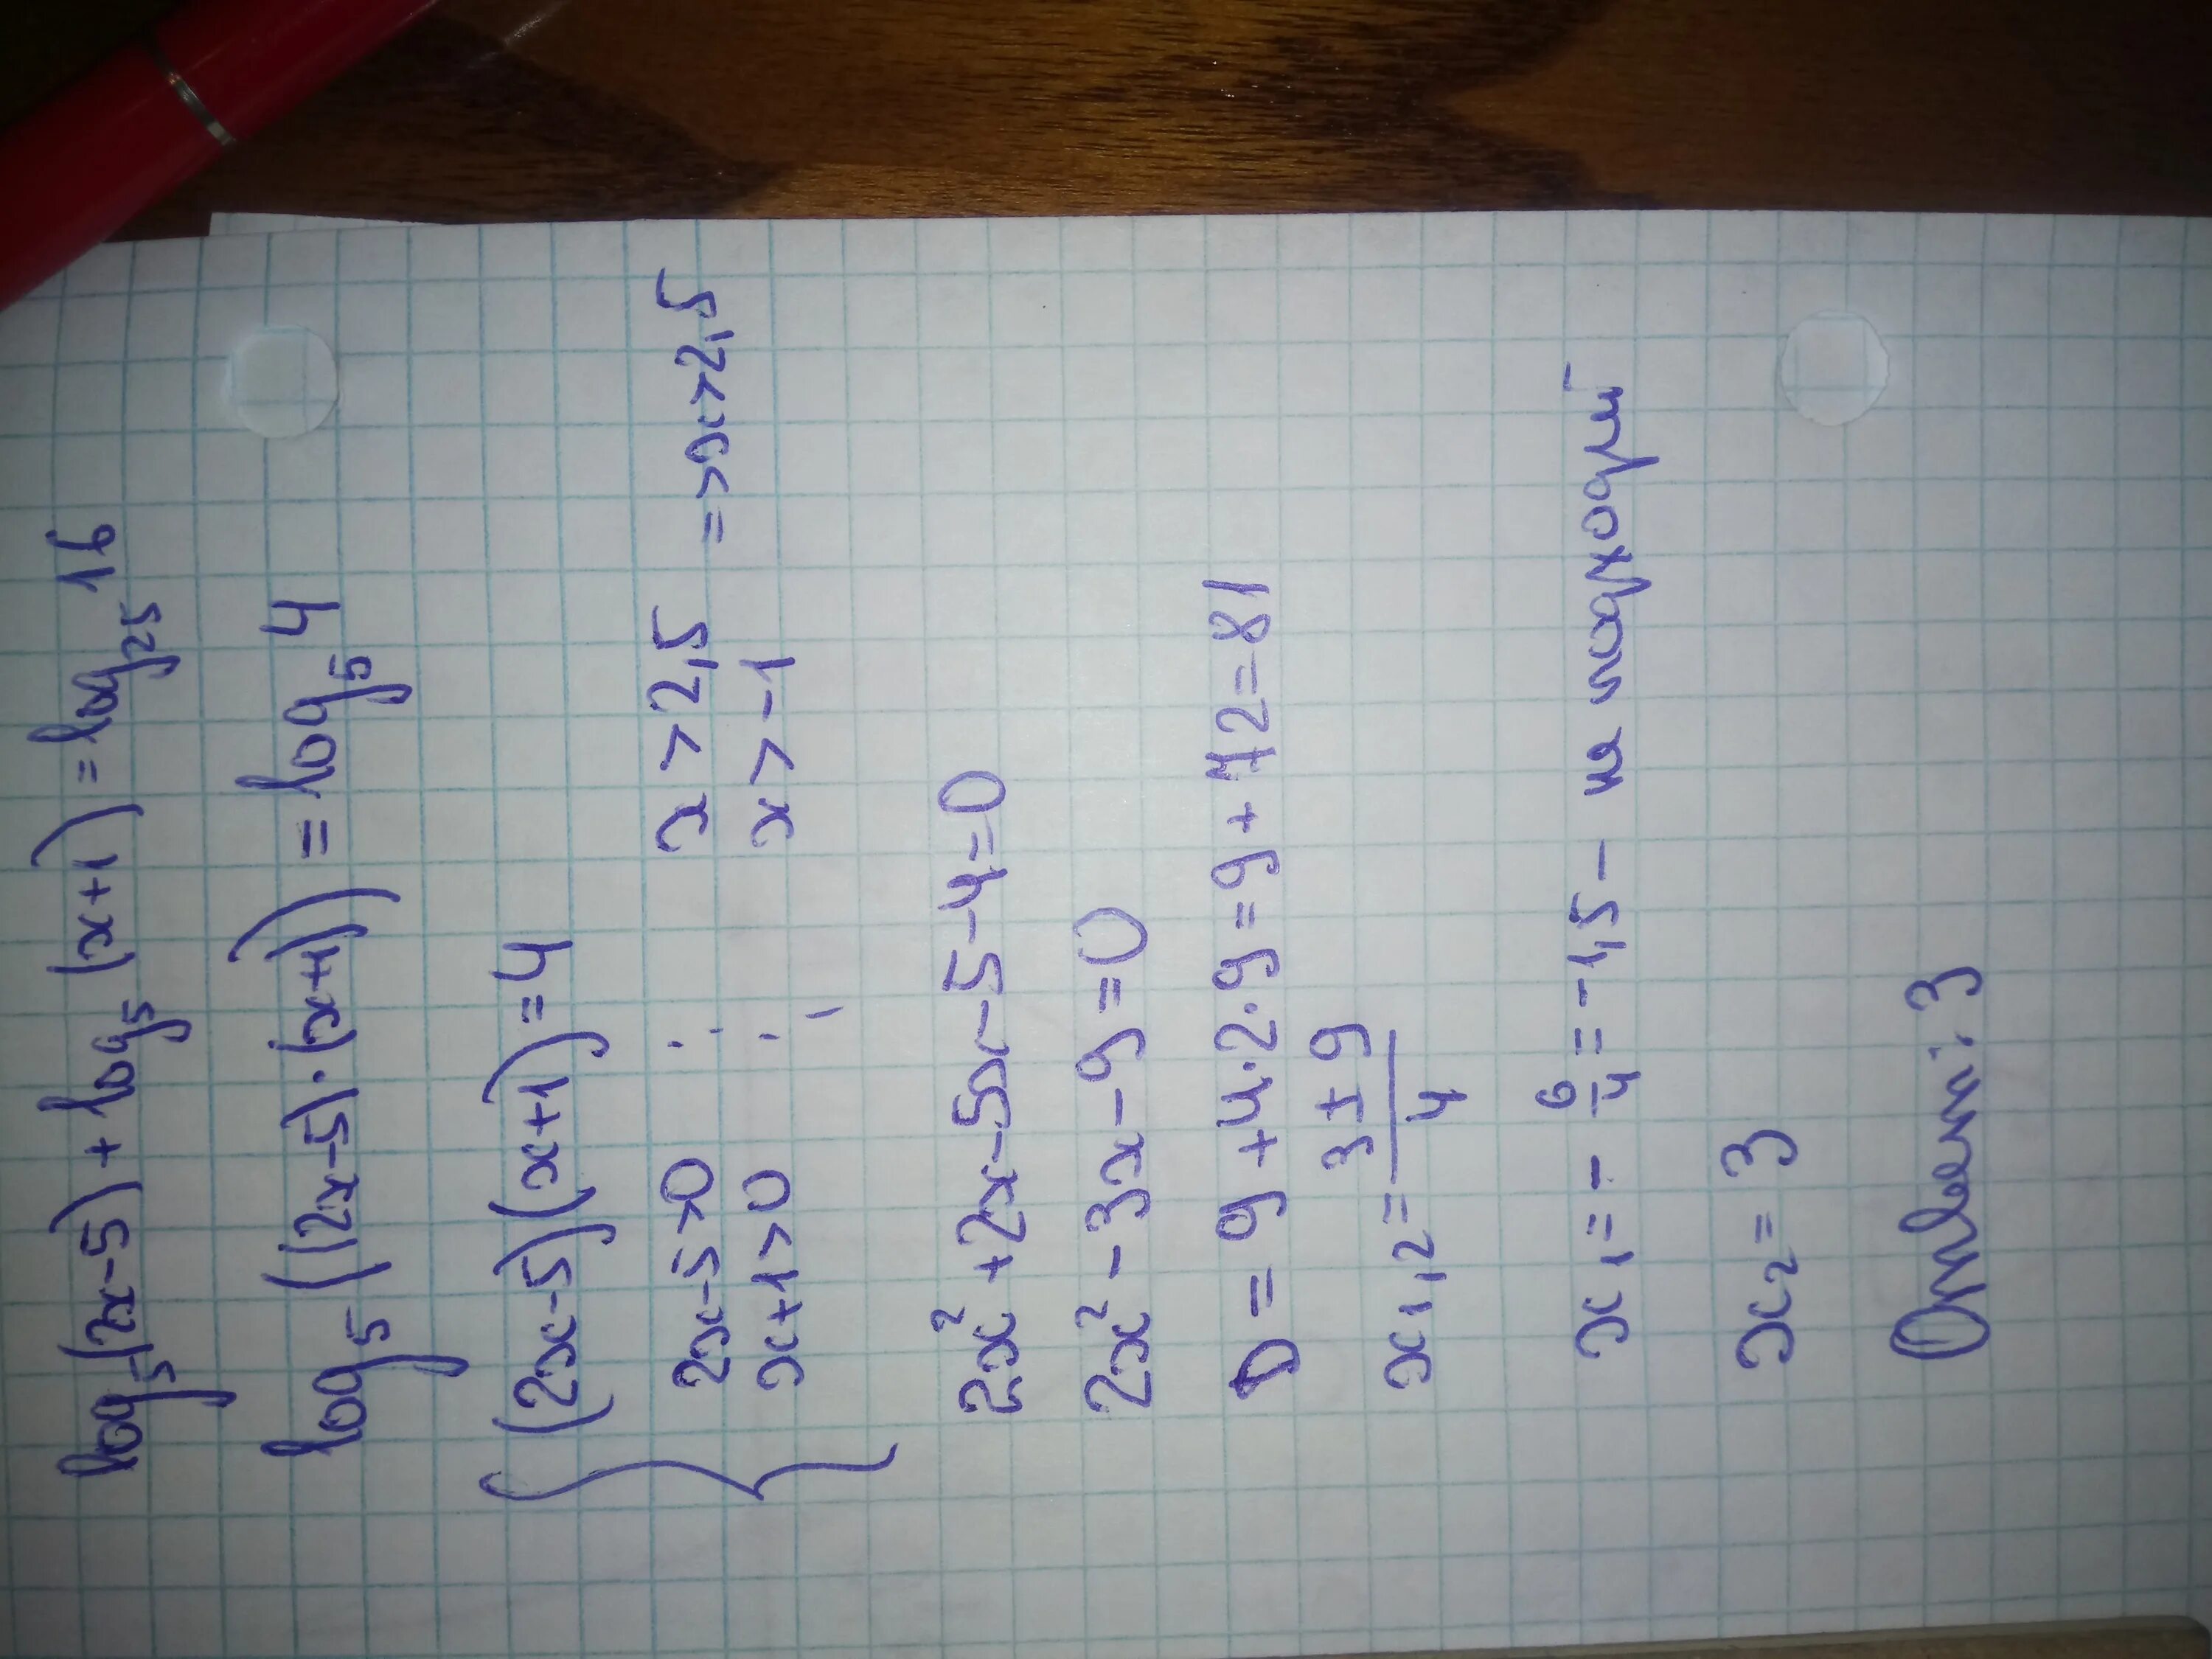 log₅(2x-5) + log₅(x+1) = log₂₅16
log₅((2x-5)·(x+1)) = log₅4
{ (2x-5)(x+1)=4
2x-5>0 ; x>2,5 => x>2,5
x+1>0 ; x>-1
2x²+2x-5x-5-4=0
2x²-3x-9=0
D = 9+4·2·9=9+72=81
x₁,₂ = (3±9)/4
x₁ = -6/4 = -1,5 - не подходит
x₂ = 3
Ответ: 3